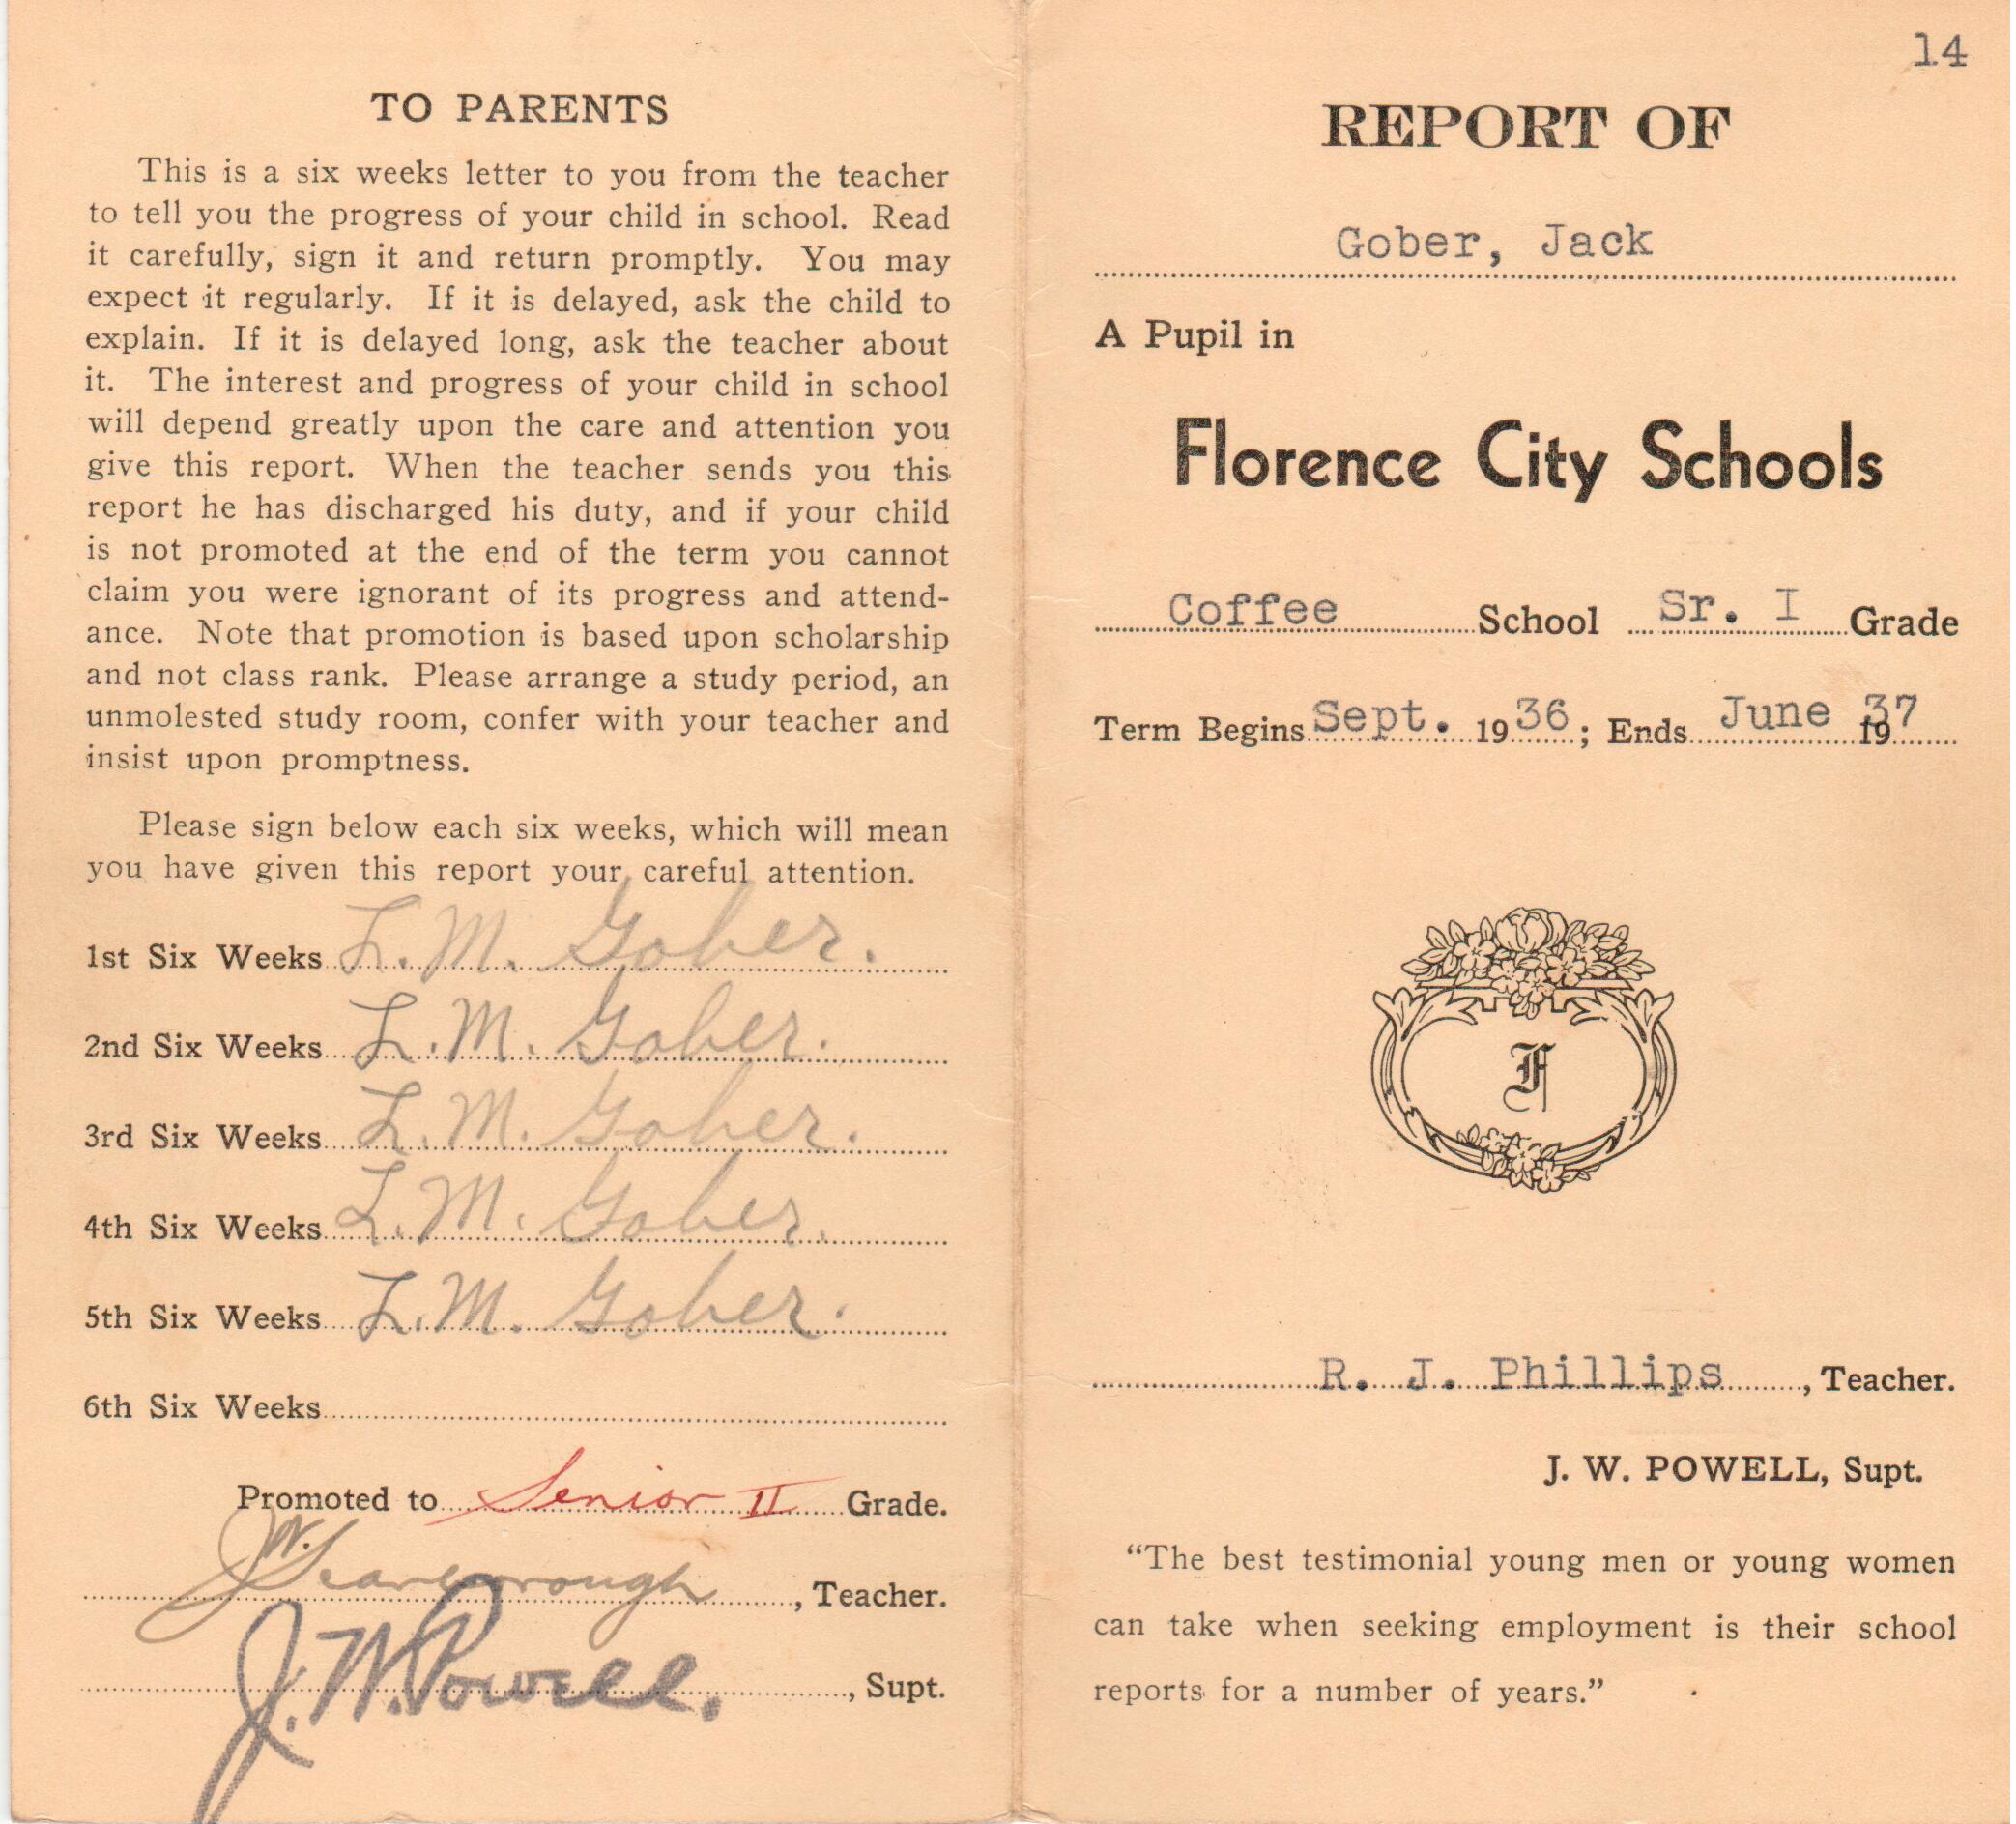 TO PARENTS
This is a six weeks letter to you from the teacher
to tell you the progress of your child in school. Read
it carefully, sign it and return promptly. You may
expect it regularly. If it is delayed, ask the child to
explain. If it is delayed long, ask the teacher about
it. The interest and progress of your child in school
will depend greatly upon the care and attention you
give this report. When the teacher sends you this
report he has discharged his duty, and if your child
is not promoted at the end of the term you cannot
claim you were ignorant of its progress and attend-
ance. Note that promotion is based upon scholarship
and not class rank. Please arrange a study period, an
unmolested study room, confer with your teacher and
insist upon promptness.
Please sign below each six weeks, which will mean
you have given this report your careful attention.
1st Six Weeks L. M. Gober.
2nd Six Weeks L. M. Gober.
3rd Six Weeks L. M. Gober.
4th Six Weeks L. M. Gober.
5th Six Weeks L. M. Gober.
6th Six Weeks
Promoted to Senior II Grade.
J W. Scarborough, Teacher.
J. W. Powell., Supt.
14
REPORT OF
Gober, Jack
A Pupil in
Florence City Schools
Coffee School Sr. I Grade
Term Begins Sept. 1936; Ends June 1937
F
R. J. Phillips, Teacher.
J. W. POWELL, Supt.
“The best testimonial young men or young women
can take when seeking employment is their school
reports for a number of years.”